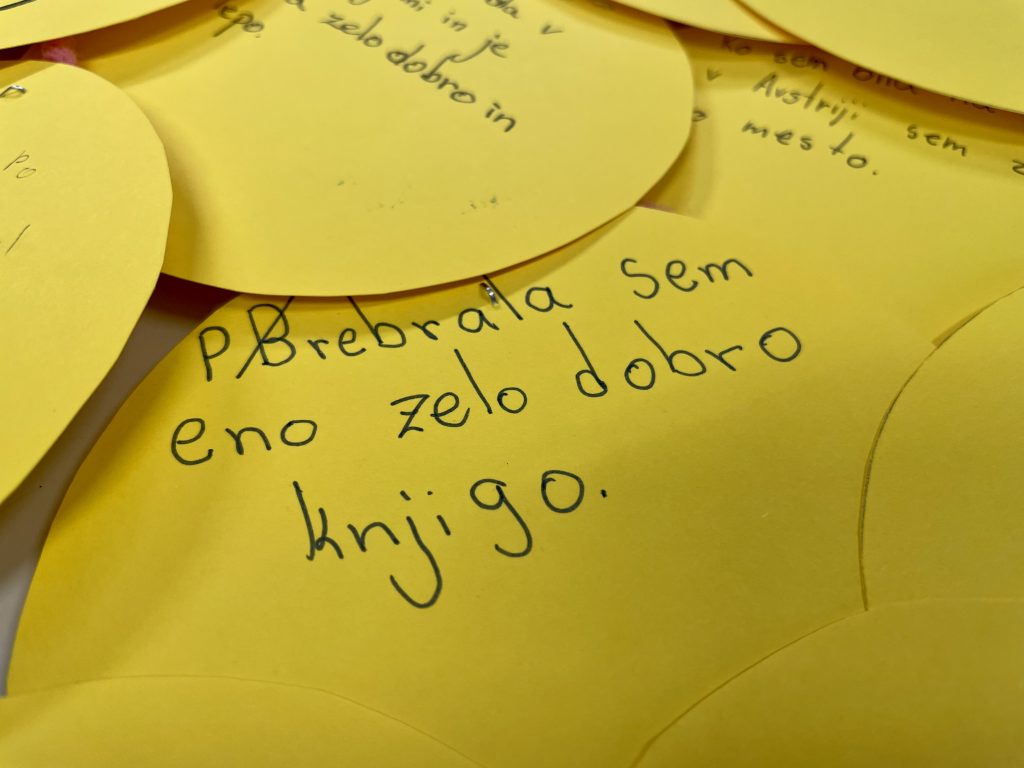 in je
zelo dobro in
Ko sem
v Avstriji sem
mesto.
po
Prebrala sem
eno zelo dobro
knjigo.